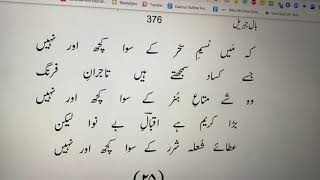 376
بال جبریل
کہ مَیں نسیمِ سحَر کے سوا کچھ اور نہیں
جسے کساد سمجھتے ہیں تاجرانِ فرنگ
وہ شے متاعِ ہُنر کے سوا کچھ اور نہیں
بڑا کریم ہے اقبالِؔ بے نوا لیکن
عطائے شُعلہ شرر کے سوا کچھ اور نہیں
(۲۵)